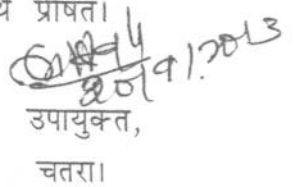 प्रेषित।
20/9/2013
उपायुक्त,
चतरा।